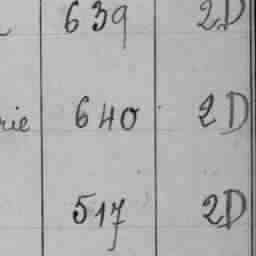 639 2D
rie 640 2D
517 2D